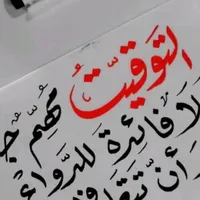 التوقيتُ مُهِمٌّ
لَا فَائِدَةَ لِلدَّوَاءِ
أَنْ